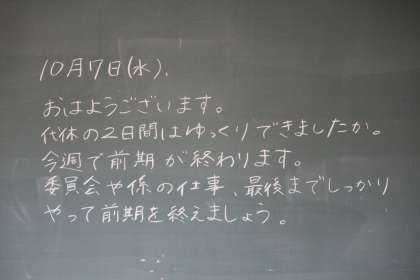 10月7日(水).
おはようございます。
代休の2日間はゆっくりできましたか。
今週で前期が終わります。
委員会や係の仕事、最後までしっかり
やって前期を終えましょう。